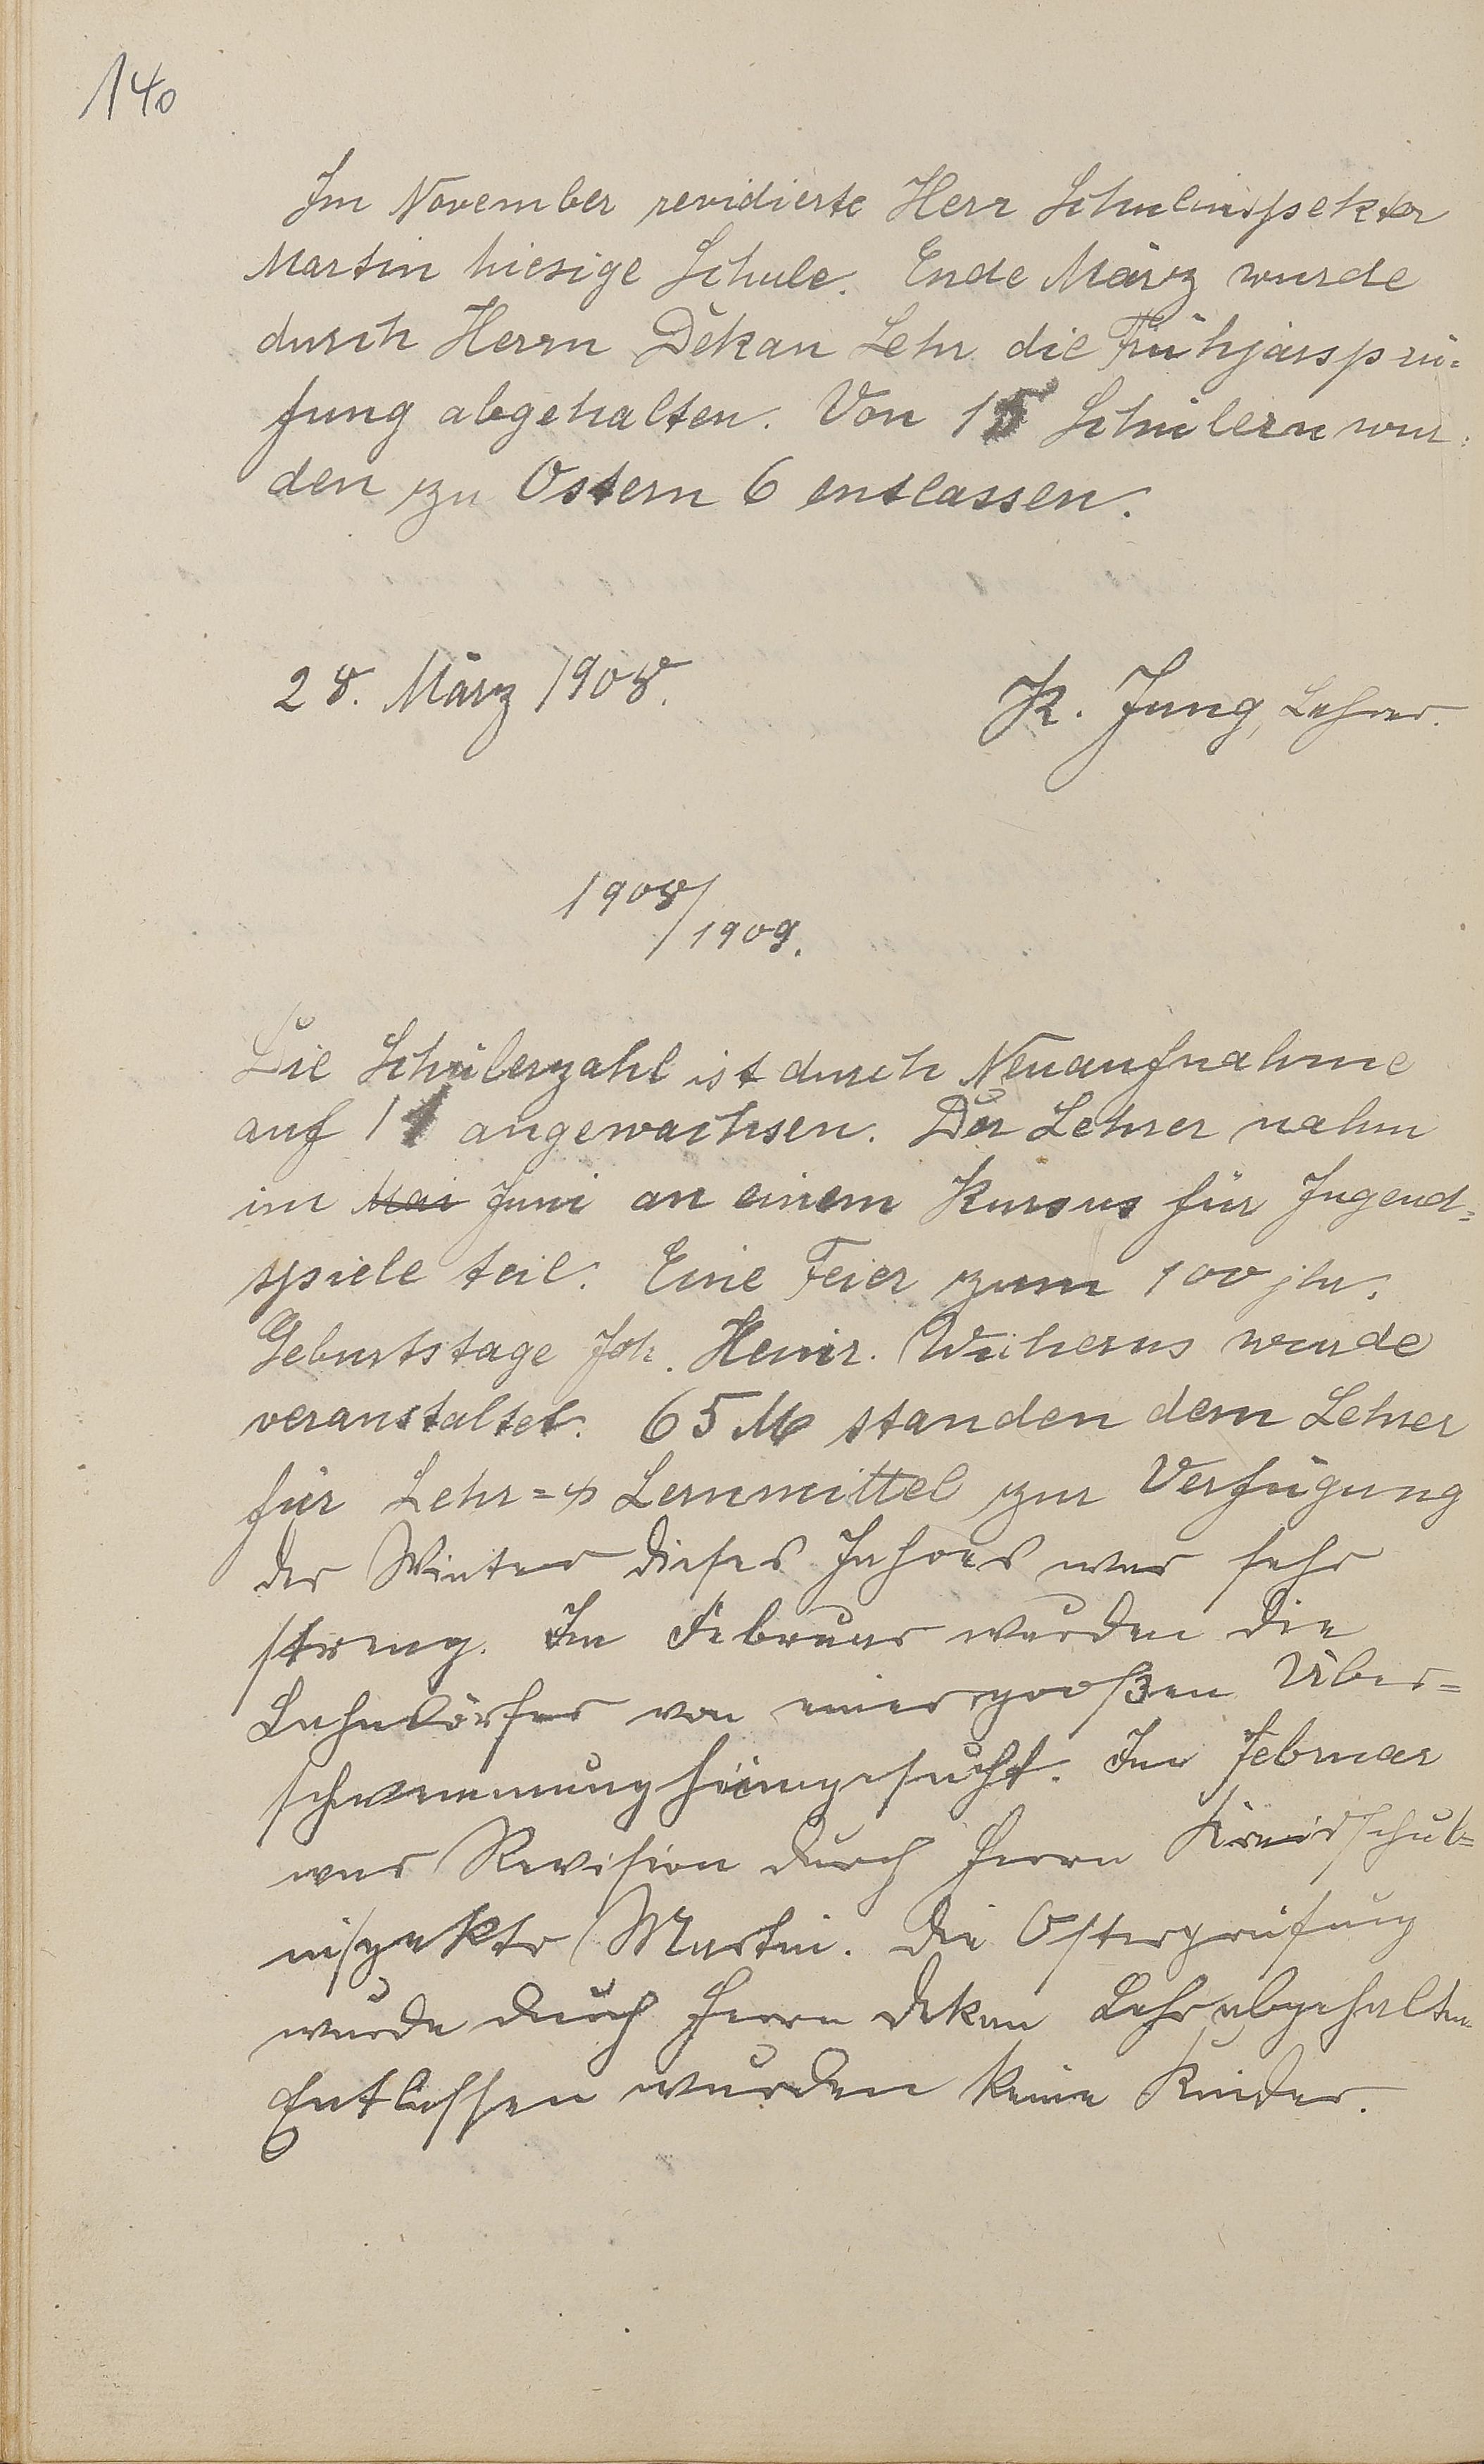 140
Im November revidierte Herr Schulinspektor
Martin hiesige Schule. Ende März wurde
durch Herrn Dekan Lehr die Frühjarsprü=
fung abgehalten. Von 15 Schülern wur=
den zu Ostern 6 entlassen.
28. März 1908.
K. Jung, Lehrer.
1908/
1909.
Die Schülerzahl ist durch Neuaufnahme
auf 11 angewachsen. Der Lehrer nahm
im Mai Juni an einem Kursus für Jugend=
spiele teil. Eine Feier zum 100 jhr.
Geburtstage Joh. Heinr. Wicherns wurde
veranstaltet. 65 M standen dem Lehrer
für Lehr= & Lernmittel zur Verfügung
Der Winter dieses Jahres war sehr
streng. Im Februar wurden die
Lahndörfer von einer großen Über=
schwemmung heimgesucht. Im Februar
war Revision durch Herrn Kreisschul=
inspektor Martin. Die Osterprüfung
wurde durch Herrn Dekan Lehr abgehalten.
Entlassen wurden keine Kinder.